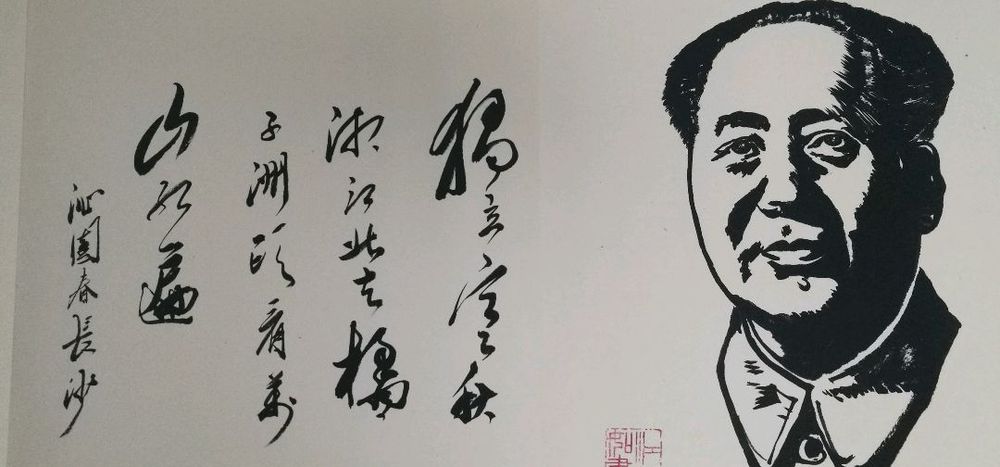 獨立寒秋
湘江北去橘
子洲頭看萬
山紅遍
沁園春長沙